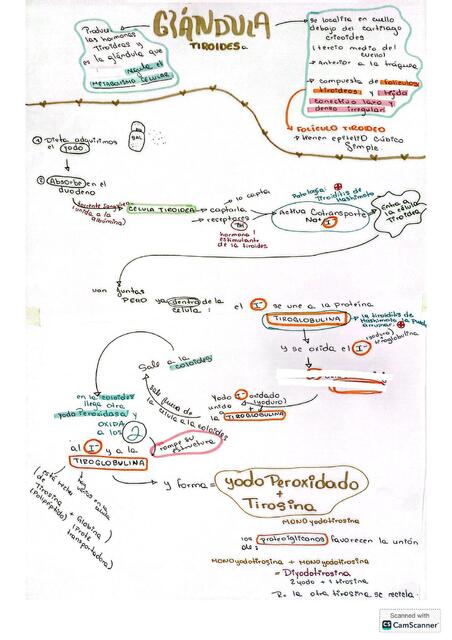 GLÁNDULA
TIROIDES
Produce
las hormonas
tiroideas y
es la glándula que
regula el
METABOLISMO CELULAR
se localiza en cuello
debajo del cartílago
cricoides
(tercio medio del
cuello)
Anterior a la tráquea
compuesta de folículos
tiroideos y tejido
conectivo laxo y
denso irregular
FOLÍCULO TIROIDEO
tienen epitelio cúbico
simple.
① Dieta adquirimos
el yodo
② Absorbe en el
duodeno
(torrente sanguíneo
(unida a la
albumina)
CÉLULA TIROIDEA
captarla
lo capta
receptores
TSH
hormona
estimulante
de la tiroides
Patología:
Tiroiditis de
Hashimoto
Activa Cotransporte
Na+ I-
Entra a
la célula
tiroidea
van juntas
PERO ya dentro de la
célula:
el I- se une a la proteína
TIROGLOBULINA
la tiroiditis de
Hashimoto la puede
y se oxida el I-
(yoduro)
tiroglobulina
Sale a la coloides
Yodo I- oxidado
unido (yoduro)
a la +
TIROGLOBULINA
sale fuera de
la célula a la coloides
en la coloides
llega otra
yodo Peroxidasa y
OXIDA
a los 2
al I- y a la
TIROGLOBULINA
rompe su
estructura
(está hecha
de Tirosina
(Polipéptido)
+ Globina
(Prote
transportadora)
y forma =
yodo Peroxidado
+
Tirosina
MONOyodotirosina
los proteoglicanos favorecen la unión
de:
MONOyodotirosina + MONOyodotirosina
= Diyodotirosina
2 yodo + 1 tirosina
R= la otra tirosina se recicla.
Scanned with
CS CamScanner